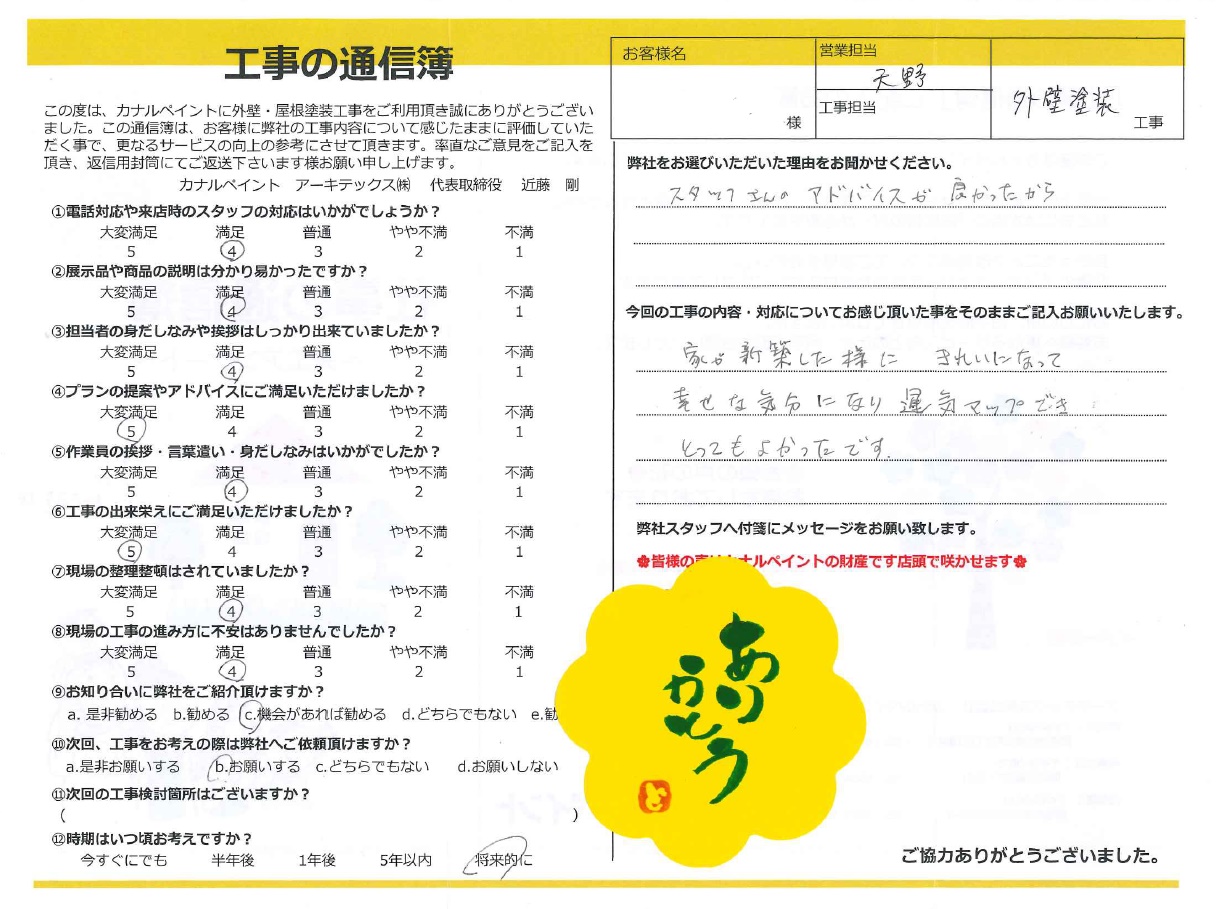 工事の通信簿
この度は、カナルペイントに外壁・屋根塗装工事をご利用頂き誠にありがとうござい
ました。この通信簿は、お客様に弊社の工事内容について感じたままに評価していた
だく事で、更なるサービスの向上の参考にさせて頂きます。率直なご意見をご記入を
頂き、返信用封筒にてご返送下さいます様お願い申し上げます。
カナルペイント アーキテックス㈱ 代表取締役 近藤 剛
①電話対応や来店時のスタッフの対応はいかがでしょうか？
大変満足 満足 普通 やや不満 不満
5 4 3 2 1
②展示品や商品の説明は分かり易かったですか？
大変満足 満足 普通 やや不満 不満
5 4 3 2 1
③担当者の身だしなみや挨拶はしっかり出来ていましたか？
大変満足 満足 普通 やや不満 不満
5 4 3 2 1
④プランの提案やアドバイスにご満足いただけましたか？
大変満足 満足 普通 やや不満 不満
5 4 3 2 1
⑤作業員の挨拶・言葉遣い・身だしなみはいかがでしたか？
大変満足 満足 普通 やや不満 不満
5 4 3 2 1
⑥工事の出来栄えにご満足いただけましたか？
大変満足 満足 普通 やや不満 不満
5 4 3 2 1
⑦現場の整理整頓はされていましたか？
大変満足 満足 普通 やや不満 不満
5 4 3 2 1
⑧現場の工事の進み方に不安はありませんでしたか？
大変満足 満足 普通 やや不満 不満
5 4 3 2 1
⑨お知り合いに弊社をご紹介頂けますか？
a. 是非勧める b.勧める c.機会があれば勧める d.どちらでもない e.勧
⑩次回、工事をお考えの際は弊社へご依頼頂けますか？
a.是非お願いする b.お願いする c.どちらでもない d.お願いしない
⑪次回の工事検討箇所はございますか？
( )
⑫時期はいつ頃お考えですか？
今すぐにでも 半年後 1年後 5年以内 将来的に
お客様名
様
営業担当
天野
工事担当
外壁塗装
工事
弊社をお選びいただいた理由をお聞かせください。
スタッフさんのアドバイスが良かったから
今回の工事の内容・対応についてお感じ頂いた事をそのままご記入お願いいたします。
家が新築した様に きれいになって
幸せな気分になり 運気マップでき
とってもよかったです。
弊社スタッフへ付箋にメッセージをお願い致します。
✿皆様の声はカナルペイントの財産です店頭で咲かせます✿
ありがとう
ご協力ありがとうございました。